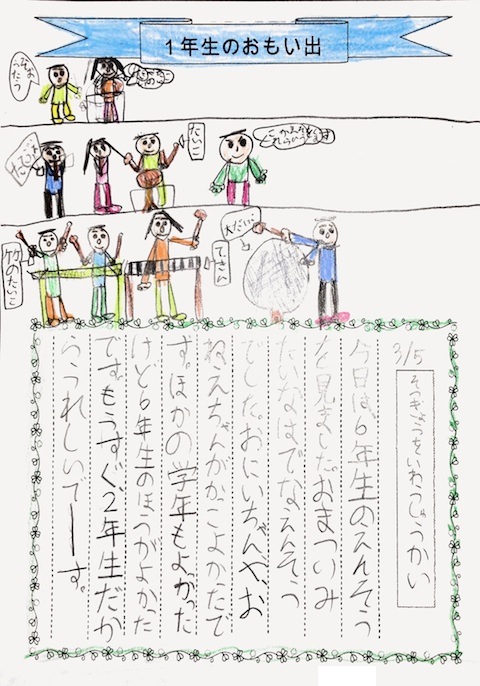 1年生のおもい出
たいこ
大だいこ
竹のたいこ
3/5
そつぎょうをいわうしゅうかい
今日は、6年生のえんそう
を見ました。おまつりみ
たいなはでなえんそう
でした。おにいちゃんや、お
ねえちゃんがかこよかたで
す。ほかの学年もよかった
けど6年生のほうがよかった
です。もうすぐ、2年生だか
らうれしいてーす。